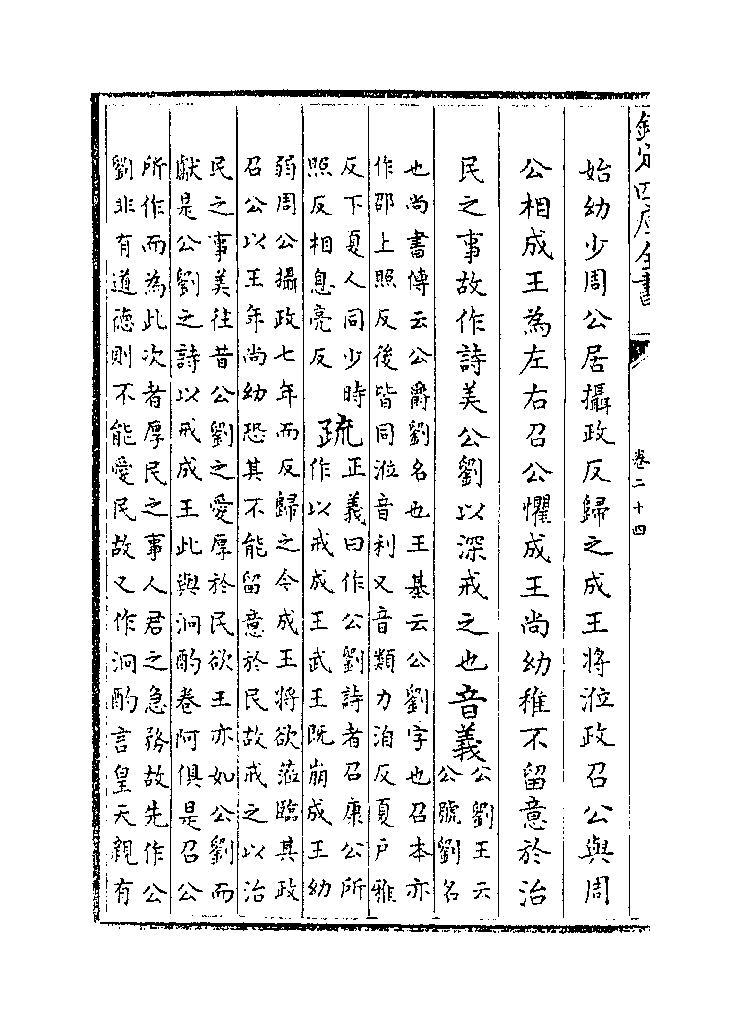 欽定四庫全書
卷二十四
始幼少周公居攝政反歸之成王將涖政召公與周
公相成王為左右召公懼成王尚幼稚不留意於治
民之事故作詩美公劉以深戒之也音義
公劉王云
公號劉名
也尚書傳云公爵劉名也王基云公劉字也召本亦
作邵上照反後皆同涖音利又音類力洎反夏戶雅
反下夏人同少時
照反相息亮反
疏
正義曰作公劉詩者召康公所
作以戒成王武王既崩成王幼
弱周公攝政七年而反歸之今成王將欲蒞臨其政
召公以王年尚幼恐其不能留意於民故戒之以治
民之事美往昔公劉之愛厚於民欲王亦如公劉而
獻是公劉之詩以戒成王此與泂酌卷阿俱是召公
所作而為此次者厚民之事人君之急務故先作公
劉非有道德則不能愛民故又作泂酌言皇天親有